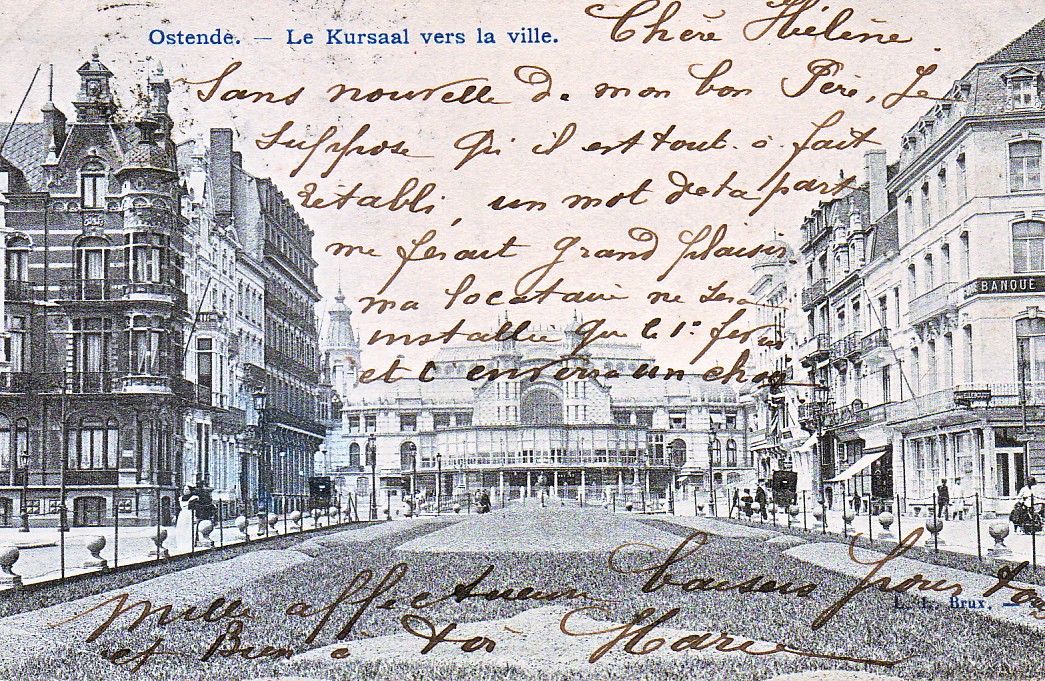 Ostende. — Le Kursaal vers la ville.
Chère Hélène
Sans nouvelle de mon bon Père, Je
suppose qu'il est tout à fait
rétabli, un mot de ta part
me ferait grand plaisir
ma locataire ne sera
installée que le 1er
et t'enverra un
BANQUE
Mille affectueux baisers pour
L. L. Brux. —
et Bien à toi Marie